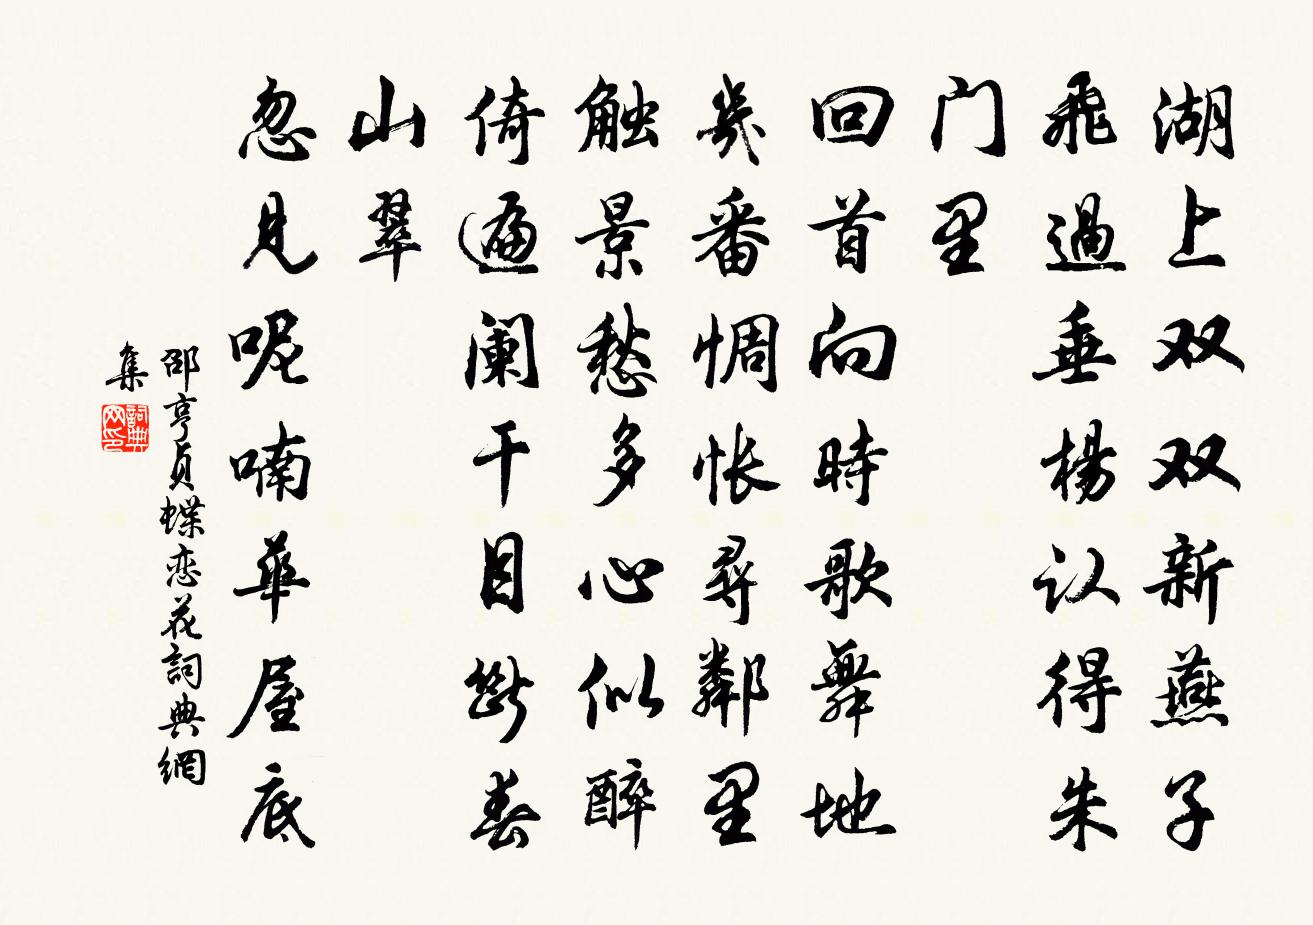 湖上双双新燕子
飛過垂楊认得朱
门里
回首向時歌舞地
幾番惆怅尋鄰里
触景愁多心似醉
倚遍阑干目斷春
山翠
忽見呢喃華屋底
邵亨貞蝶恋花詞典網
集
詞典网印